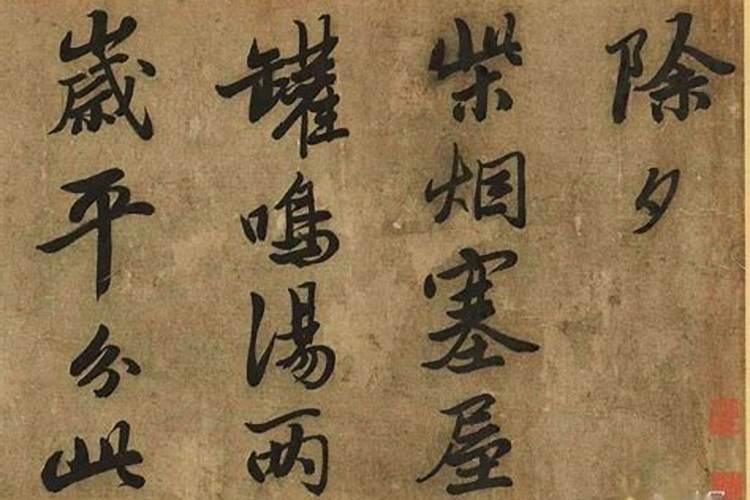 除夕
柴烟塞屋
罐鳴湯两
歲平分此